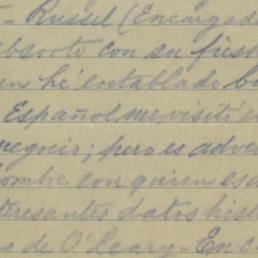 - Russel (Encargad
absorto con su fies
en hé entablado bu
Español me visitó e
negocio; pero es adve
ombre con quien es
teresantes datos hist
de O'Leary - En c